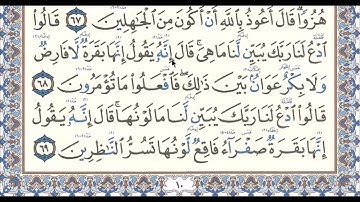 هُزُوًا ۖ قَالَ أَعُوذُ بِٱللَّهِ أَنْ أَكُونَ مِنَ ٱلْجَٰهِلِينَ ٦٧ قَالُوا۟
ٱدْعُ لَنَا رَبَّكَ يُبَيِّن لَّنَا مَا هِىَ ۚ قَالَ إِنَّهُۥ يَقُولُ إِنَّهَا بَقَرَةٌ لَّا فَارِضٌ
وَلَا بِكْرٌ عَوَانٌۢ بَيْنَ ذَٰلِكَ ۖ فَٱفْعَلُوا۟ مَا تُؤْمَرُونَ ٦٨
قَالُوا۟ ٱدْعُ لَنَا رَبَّكَ يُبَيِّن لَّنَا مَا لَوْنُهَا ۚ قَالَ إِنَّهُۥ يَقُولُ
إِنَّهَا بَقَرَةٌ صَفْرَآءُ فَاقِعٌ لَّوْنُهَا تَسُرُّ ٱلنَّٰظِرِينَ ٦٩
١٠